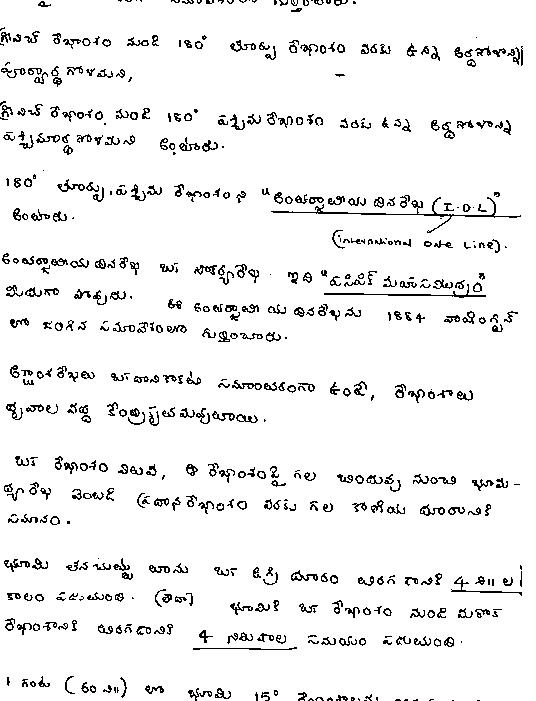 గ్రీనిచ్ రేఖాంశం నుండి 180° తూర్పు రేఖాంశం వరకు ఉన్న అర్ధగోళాన్ని
పూర్వార్ధగోళమని,
గ్రీనిచ్ రేఖాంశం నుండి 180° పశ్చిమ రేఖాంశం వరకు ఉన్న అర్ధగోళాన్ని
పశ్చిమార్ధగోళమని అంటారు.
180° తూర్పు, పశ్చిమ రేఖాంశంని "అంతర్జాతీయ దినరేఖ (I.D.L)"
అంటారు.
(International Date Line).
అంతర్జాతీయ దినరేఖ ఒక ఇది "పసిఫిక్ మహాసముద్రం"
మీదుగా పోవును. ఈ అంతర్జాతీయ దినరేఖను 1884 వాషింగ్టన్
లో జరిగిన సమావేశంలో గుర్తించారు.
అక్షాంశరేఖలు ఒకదానికొకటి సమాంతరంగా ఉండి, రేఖాంశాలు
ధృవాల వద్ద కేంద్రీకృతమవుతాయి.
ఒక రేఖాంశం విలువ, ఆ రేఖాంశంపై గల బిందువు నుంచి భూమ-
ధ్యరేఖ వెంబడి ప్రధానరేఖాంశం వరకు గల కోణీయ దూరానికి
సమానం.
భూమి తనచుట్టు తాను ఒక డిగ్రీ దూరం తిరగడానికి 4 ని॥ల
కాలం పడుతుంది. (లేదా) భూమికి ఒక రేఖాంశం నుండి మరొక
రేఖాంశానికి తిరగడానికి 4 నిమిశాల సమయం పడుతుంది.
1 గంట (60 ని॥) లో భూమి 15°